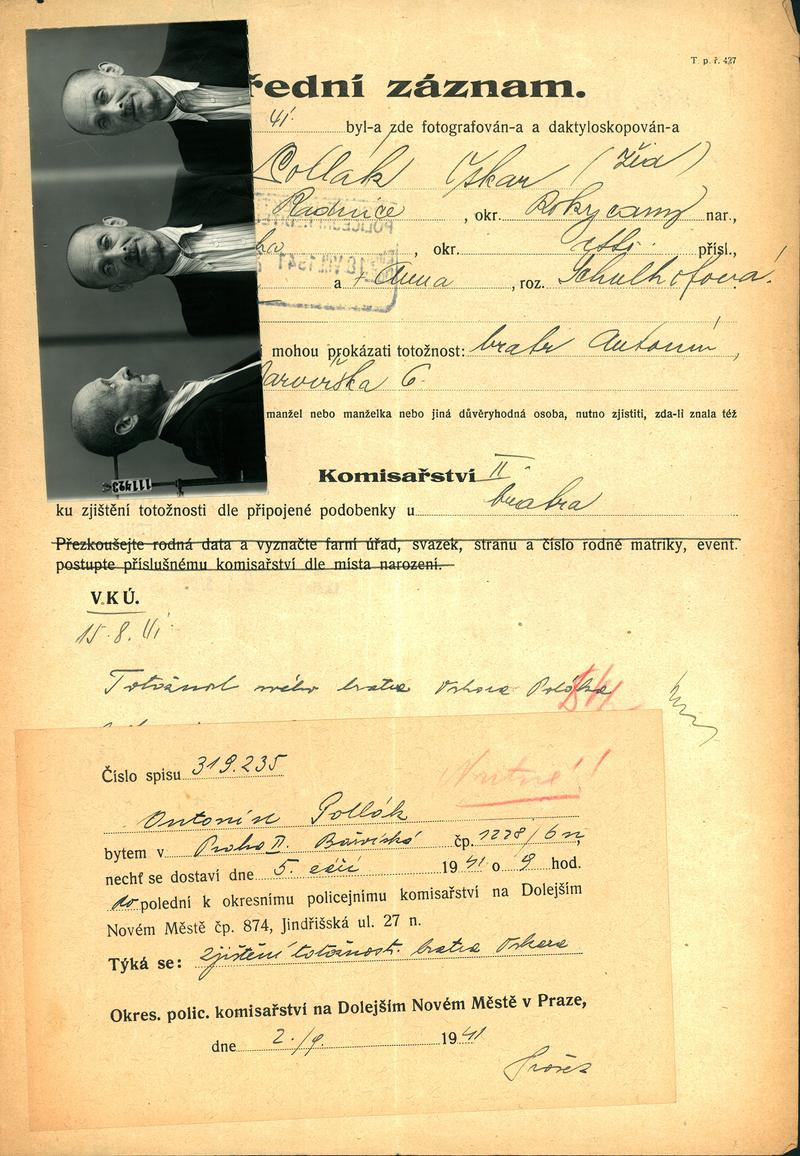 T. p. ř. 427
řední záznam.
41. byl-a zde fotografován-a a daktyloskopován-a
Pollák Oskar (Žid)
Radnice, okr. Rokycany nar.,
okr. přísl.,
a † Anna, roz. Schulhofová.
POLICEJNÍ ŘEDITEL
18 VIII. 1941
i mohou prokázati totožnost: bratr Antonín,
6.
manžel nebo manželka nebo jiná důvěryhodná osoba, nutno zjistiti, zda-li znala též
111423
Komisařství II.
ku zjištění totožnosti dle připojené podobenky u bratra
Přezkoušejte rodná data a vyznačte farní úřad, svazek, stranu a číslo rodné matriky, event.
postupte příslušnému komisařství dle místa narození.
V. K Ú.
15. 8. 41.
Totožnost mého bratra Oskara Poláka
Číslo spisu 319.235
Nutné!
Antonín Pollák
bytem v Praha II. čp. 1278/6 n,
nechť se dostaví dne 5. září 1941 o 9 hod.
do polední k okresnímu policejnímu komisařství na Dolejším
Novém Městě čp. 874, Jindřišská ul. 27 n.
Týká se: zjištění totožnosti bratra Oskara
Okres. polic. komisařství na Dolejším Novém Městě v Praze,
dne 2./9. 1941